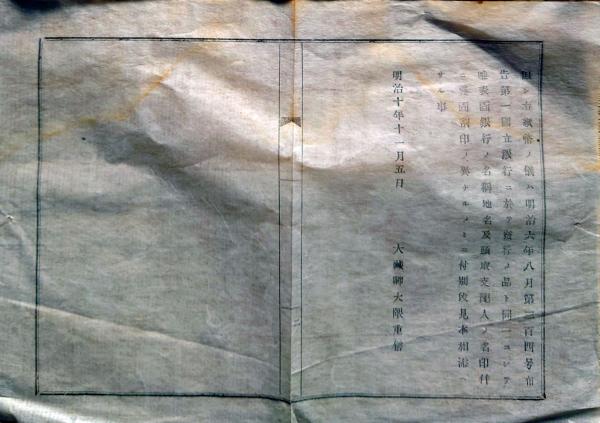 但シ右紙幣ノ儀ハ明治六年八月第三百四号布
告第一国立銀行ニ於テ発行ノ品ト同一ニシテ
唯表面銀行ノ名称地名及頭取支配人ノ名印幷
ニ裏面割印ノ異ナルノミニ付別段見本相添ヘ
サル事
明治十年十一月五日
大蔵卿大隈重信